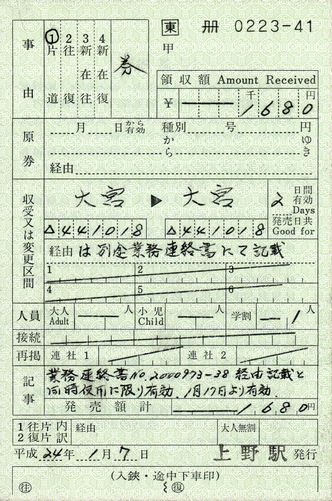 東 冊 0223-41
事由
① 片道
2 往復
3 新在往
4 新在復
券
甲
領収額 Amount Received
千 円
¥ 1680
原券
月 日から有効 種別 号 円
から ゆき
経由
収受又は変更区間
大宮 ▶ 大宮
2 日間有効 Days
△441018 △441018 発売日共 Good for
経由は別途業務連絡書にて記載
1 2 3
4 5 6
人員 大人 Adult 小児 Child 学割 1 人
接続
再掲 連社 1 連社 2
記事
業務連絡書No.2000973-38 経由記載と
同時使用に限り有効. 1月17日より有効.
発売額計 1680
1 往片 内
2 復片 訳
経由 大人無割 円
平成24年1月7日 上野駅 発行
(入鋏・途中下車印)
往 復